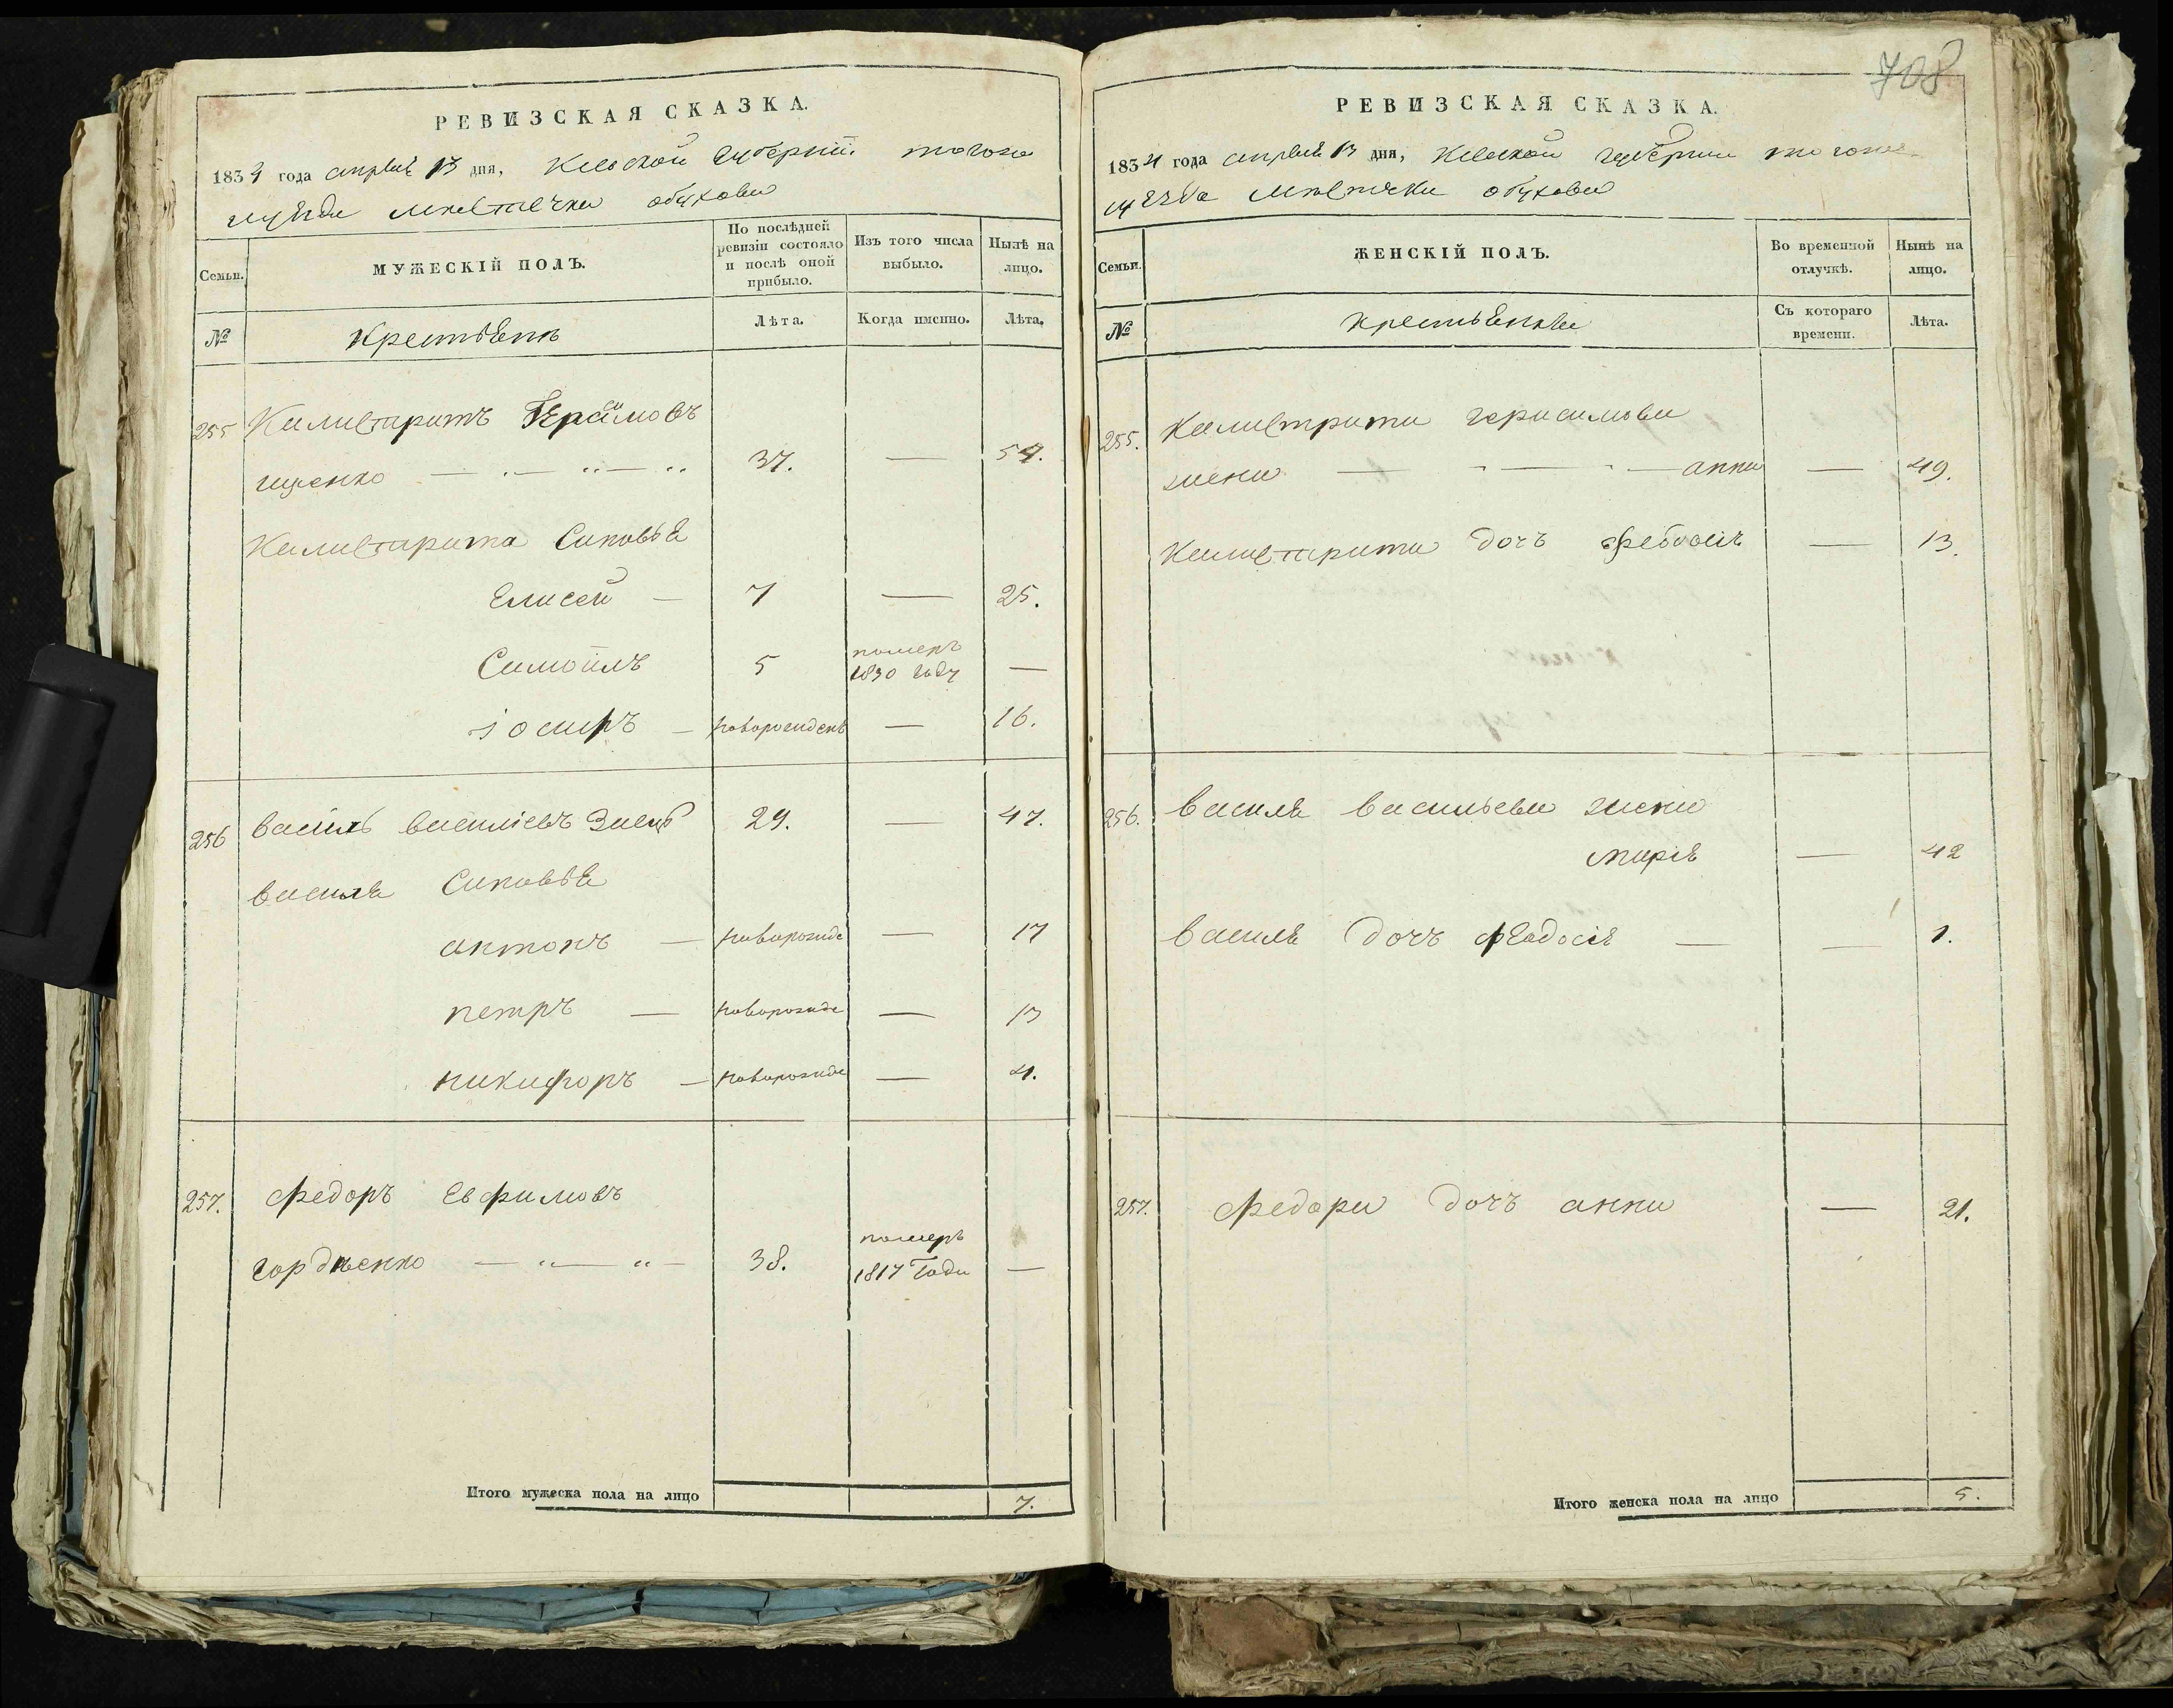 РЕВИЗСКАЯ СКАЗКА.
1834 года апреля 13 дня, Киевской Губернии тогоже
уезда местечка обухова
Семьи.
МУЖЕСКІЙ ПОЛЪ.
По послѣдней ревизіи состояло и послѣ оной прибыло.
Изъ того числа выбыло.
Нынѣ на лицо.
№
Крестьянъ
Лѣта.
Когда именно.
Лѣта.
255 Калистратъ Герасимовъ
ищенко 37. — 54.
Калистрата Сыновья
Елисей — 7 — 25.
Самойлъ 5 померъ 1830 году —
іосифъ — новорожденъ — 16.
256 василь василіевъ Заецъ 29. — 47.
василя Сыновья
антонъ — новорожде — 17
петръ — новорожде — 13
никифоръ — новорожде — 4.
257. Федоръ Евфимовъ
гордѣенко 38. померъ 1817 Года —
Итого мужеска пола на лицо 7.
708
РЕВИЗСКАЯ СКАЗКА.
1834 года апреля 13 дня, Киевской губернии тогоже
уезда местечка обухова
Семьи.
ЖЕНСКІЙ ПОЛЪ.
Во временной отлучкѣ.
Нынѣ на лицо.
№
крестьянки
Съ котораго времени.
Лѣта.
255. Калистрата герасимова
жена — анна — 49.
Калистрата дочъ — 13.
256. василя васильева жена
марія — 42
василя дочъ феодосія — — 1.
257. Федора дочъ анна — 21.
Итого женска пола на лицо 5.